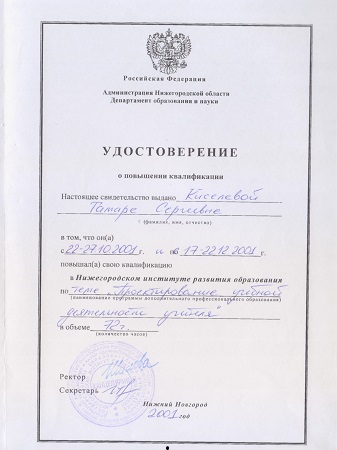 Российская Федерация
Администрация Нижегородской области
Департамент образования и науки
УДОСТОВЕРЕНИЕ
о повышении квалификации
Настоящее свидетельство выдано Киселевой
Тамаре Сергеевне
(фамилия, имя, отчество)
в том, что он(а)
с 22-27.10.2001 г. и с 17-22.12.2001 г.
повышал(а) свою квалификацию
в Нижегородском институте развития образования
по теме "Проектирование учебной
(наименование программы дополнительного профессионального образования)
деятельности учителя"
в объеме 72 г.
(количество часов)
Ректор
Секретарь
Нижний Новгород
2001 год